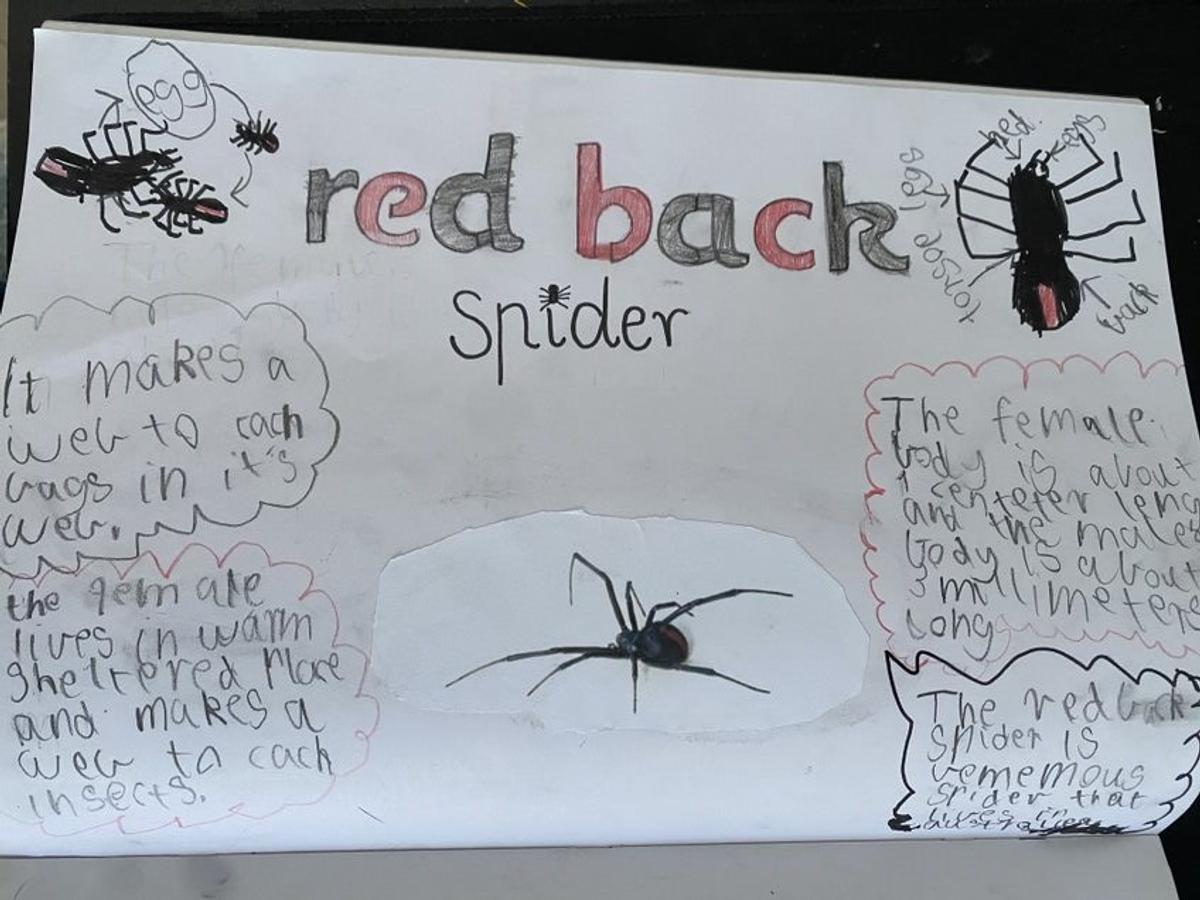 egg
red back
spider
hed.
eyes
legs
back
It makes a
web to cach
bags in it's
web.
the female
lives in warm
sheltered place
and makes a
web to cach
insects.
The female
body is about
1 centeter long
and the males
body is about
3 millimeters
long
The redback
spider is
vememous
spider that
lives in